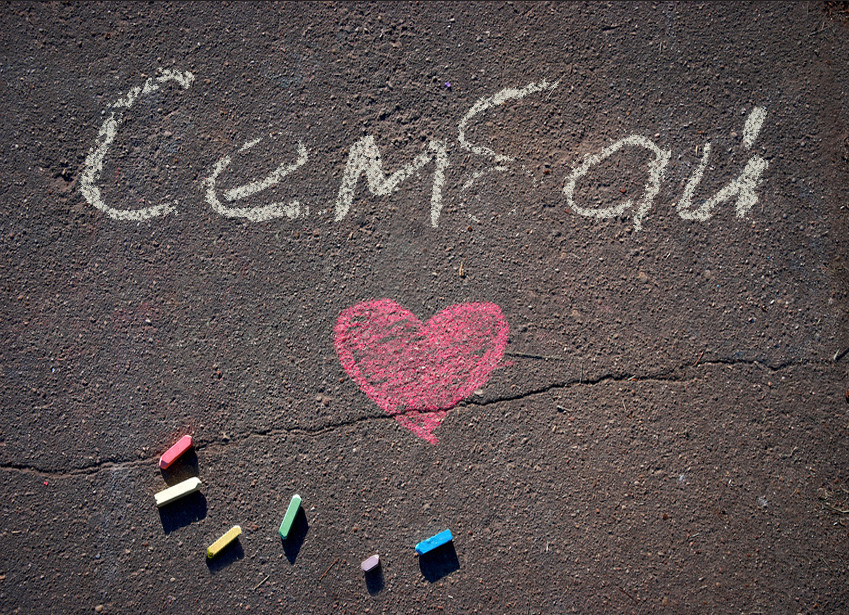 Сембай